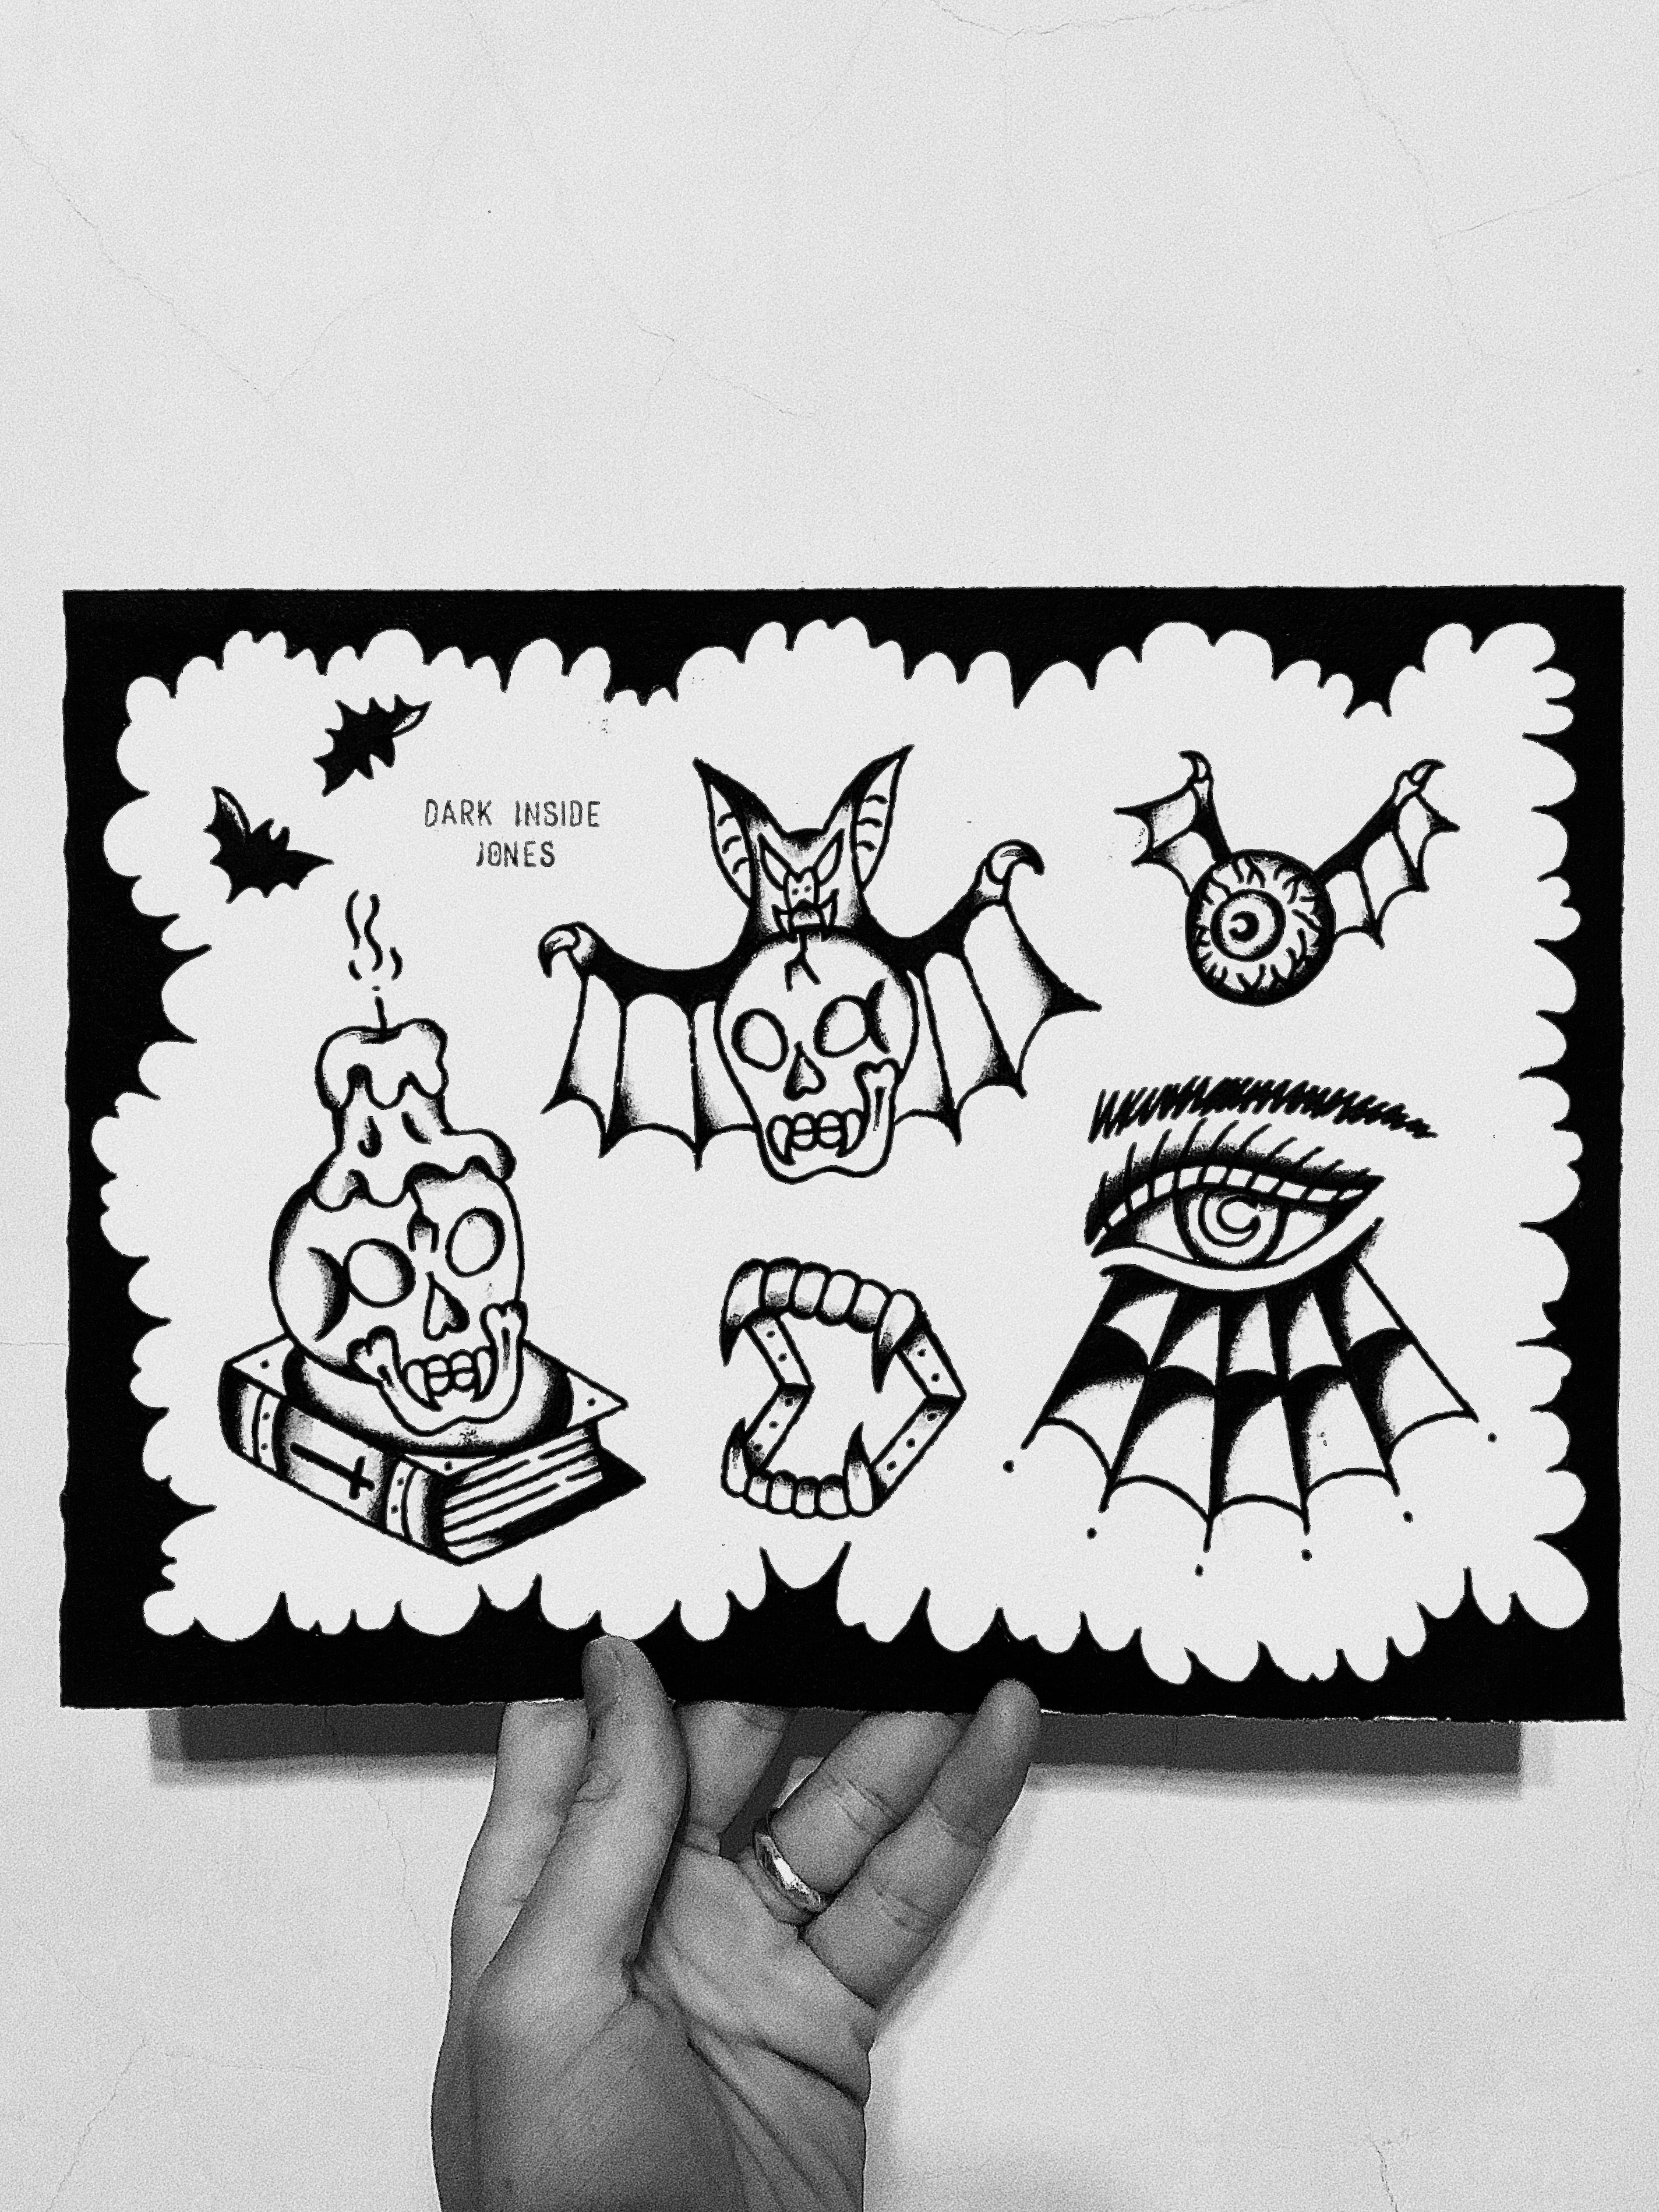 DARK INSIDE
JONES